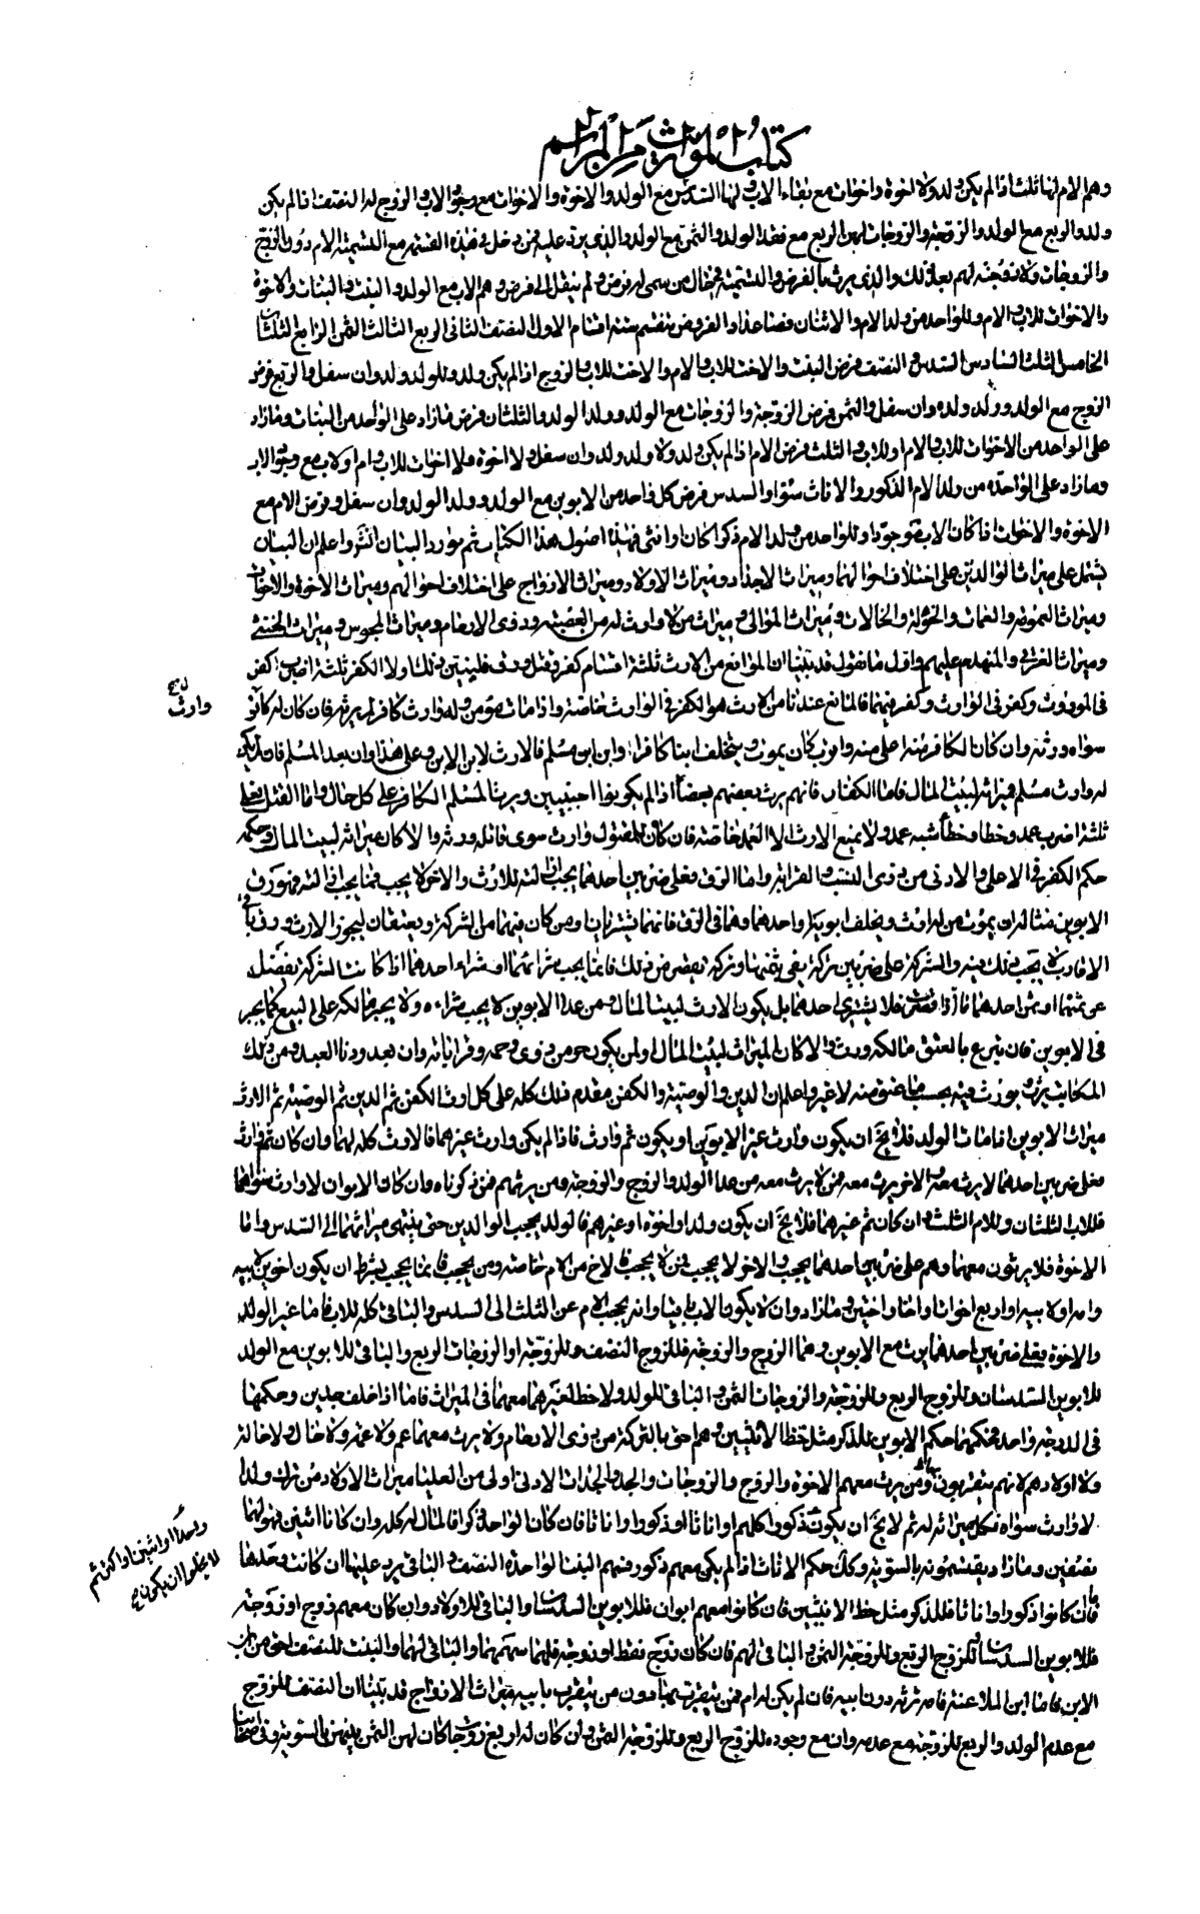 كتاب المواريث من المراسم
وهم الام لها ثلث اذا لم يكن ولد ولا اخوة واخوات مع بقاء الاب ولها السدس مع الولد والاخوة والاخوات مع وجود الاب والزوج له النصف اذا لم يكن
ولد والربع مع الولد والزوجة والزوجات لهن الربع مع فقد الولد والثمن مع الولد والذى يرد عليه من دخل فى هذه القسمة مع التسمية الام دون الزوج
والزوجات ولا زوجة لهم بعد ذلك والذى يرث بالفرض والتسمية فى حال من سمى له فرض ولم ينتقل الى فرض وهم الاب مع الولد والبنت والبنات والاخوة
والاخوات للاب والام وللواحد من ولد الام والاثنان فصاعدا والفروض تنقسم ستة اقسام الاول النصف الثانى الربع الثالث الثمن الرابع الثلثان
الخامس الثلث السادس السدس والنصف فرض البنت والاخت للاب والام والاخت للاب والزوج اذا لم يكن ولد وللولد ولد وان سفل والربع فرض
الزوج مع الولد وولد ولده وان سفل والثمن فرض الزوجة والزوجات مع الولد وولد الولد والثلثان فرض مازاد على الواحد من البنات ومازاد
على الواحد من الاخوات للاب والام او للاب والثلث فرض الام اذا لم يكن ولد ولا ولد ولد وان سفل ولا اخوة ولا اخوات للاب وام او لاب مع وجود الاب
ومازاد على الواحدة من ولد الام الذكور والاناث سواء والسدس فرض كل واحد من الابوين مع الولد وولد الولد وان سفل وفرض الام مع
الاخوة والاخوات اذا كان الاب موجودا وللواحد من ولد الام ذكرا كان او انثى فهذه اصول هذا الكتاب ثم نورد البيان واعلم ان البيان
يشتمل على ميراث الوالدين على اختلاف احوالهما وميراث الاجداد وميراث الاولاد وميراث الازواج على اختلاف احوالهم وميراث الاخوة والاخوات
وميراث العمومة والعمات والخؤلة والخالات وميراث الموالى وميراث من لا وارث له من العصبة وذوى الارحام وميراث المجوس وميراث الخنثى
وميراث الغرقى والمنهدم عليهم واول ما نقول قد بينا ان الموانع من الارث ثلثة اقسام كفر وقتل ورق فلنبين ذلك اولا الكفر ثلثة اضرب كفر
فى الموروث وكفر فى الوارث وكفر فيهما فالمانع عندنا من الارث هو الكفر فى الوارث خاصة واذا مات مؤمن وله وارث كافر لم يرثه فان كان له
وارث
سواه ورثه وان كان الكافر منه اعلى منه واقرب كان يموت ويخلف ابنا كافرا وابن ابن مسلم فالارث لابن الابن وعلى هذا وان بعد المسلم فان لم يكن
له وارث مسلم فميراثه لبيت المال فاما الكفار فانهم يرث بعضهم بعضا اذا لم يكونوا ويرث المسلم الكافر على كل حال واما القتل فعلى
ثلثة اضرب عمد وخطا وخطأ شبه عمد ولا يمنع الارث الا العمد خاصة فان كان للمقتول وارث سوى قاتله ورثه والا كان ميراثه لبيت المال وحكمه
حكم الكفر فى الاعلى والادنى من ذوى النسب والقرابة واما الرق فعلى ضربين احدهما يجب ازالته للارث والاخر لا يجب فما يجب ازالته فهو رق
الابوين مثاله ان يموت من له ارث ويخلف ابويه او احدهما وهما فى الرق فانهما يشتريان ومن كان فيهما من التركة ويعتقان ليحوز الارث ورق باقى
الاقارب لا يجب ذلك فيه والتركة على ضربين تركة يفى بثمنهما وتركة تقصر عن ذلك فانما يجب شراءهما او شراء احدهما اذا كانت التركة تفضل
عن ثمنهما او ثمن احدهما فاذا قصرت فلا يشترى احدهما بل يكون الارث لبيت المال ومن عدا الابوين لا يجب شراءه ولا يجبر مالكه على البيع كما يجبر
فى الابوين فان تبرع بالعتق مالكه ورث والا كان الميراث لبيت المال او لمن يكون حرا من ذوى رحمه وقراباته وان بعد ودنا العبد ومن ذلك
المكاتب يرث ويورث فيه بحسب ما عتق منه لا غير واعلم ان الدين والوصية والكفن مقدم ذلك كله على كل ارث الكفن ثم الدين ثم الوصية ثم الارث
ميراث الابوين اذا مات الولد فلا يخ ان يكون وارث غير الابوين او يكون ثم وارث فاذا لم يكن وارث غيرهما فالارث كله لهما وان كان ثم وارث
فعلى ضربين احدهما لا يرث معه والاخر يرث معه فمن لا يرث معه من عدا الولد والزوج والزوجة ومن يرثهم فمن ذكرناه وان كان الابوان لا وارث سواهما
فللاب الثلثان وللام الثلث وان كان ثم غيرهما فلا يخ ان يكون ولدا واخوة او غيرهم فالولد يحجب الوالدين حتى ينتهى ميراثهما الى السدس واما
الاخوة فلا يرثون معهما وهم على ضربين احدهما يحجب والاخر لا يحجب فمن لا يحجب فالاخ من الام خاصة ومن يحجب فانما يحجب بشرط ان يكون اخوين لابيه
وامه او لابيه او اربع اخوات واخا واختين ومازاد وان لا يكون الاب ميتا وانه يحجب الام عن الثلث الى السدس والباقى كله للاب فاما غير الولد
والاخوة فعلى ضربين احدهما يرث مع الابوين وهما الزوج والزوجة فللزوج النصف وللزوجة او الزوجات الربع والباقى للابوين مع الولد
للابوين السدسان وللزوج الربع وللزوجة والزوجات الثمن والباقى للولد ولا حظ لغيرهما معهما فى الميراث فاما اذا خلف جدين وحكمهما
فى الدرجة واحد فحكمهما حكم الابوين للذكر مثل حظ الانثيين وهم احق بالتركة من ذوى الارحام ولا يرث معهما عم ولا عمة ولا خال ولا خالة
ولا اولادهم لانهم يتقربون بهم ومن يرث معهم الاخوة والزوج والزوجات والجد والجدات الادنى اولى من العليا ميراث الاولاد من ترك ولدا
لا وارث سواه فكل ميراثه له ثم لا يخ ان يكون ذكورا كلهم او اناثا او ذكورا واناثا فان كان الواحد ذكرا فالمال له كله وان كانا اثنين فهو لهما
واحدا او اثنين او اكثر ثم
لا يخلو اان يكون
نصفين ومازاد يقسمونه بالسوية وكك حكم الاناث اذا لم يكن معهم ذكور فسهم البنت الواحدة النصف والباقى يرد عليها ان كانت وحدها
فان كانوا ذكورا واناثا فللذكر مثل حظ الانثيين فان كانوا معهم ابوان فللابوين السدسان والباقى للاولاد وان كان معهم زوج او زوجة
فللابوين السدسان وللزوج الربع وللزوجة الثمن والباقى لهم فان كان زوج فقط او زوجة فلهما سهمهما والباقى لهما والبنت للنصف احق من
الابن فاما ابن الملاعنة فامه ترثه دون ابيه فان لم يكن له ام فمن يتقرب بها دون من يتقرب بابيه ميراث الازواج قد بينا ان النصف للزوج
مع عدم الولد والربع للزوجة مع عدمه وان مع وجوده للزوج الربع وللزوجة الثمن وان كان له اربع زوجات كان لهن الثمن بينهن بالسوية وفى اصحابنا